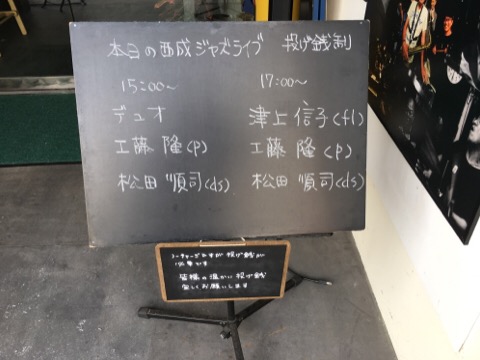 本日の西成ジャズライブ 投げ銭制
15:00〜 17:00〜
デュオ 津上信子(fl)
工藤隆(p) 工藤隆(p)
松田順司(ds) 松田順司(ds)
ノーチャージですが投げ銭が
必要です
皆様の温かい投げ銭
宜しくお願いします